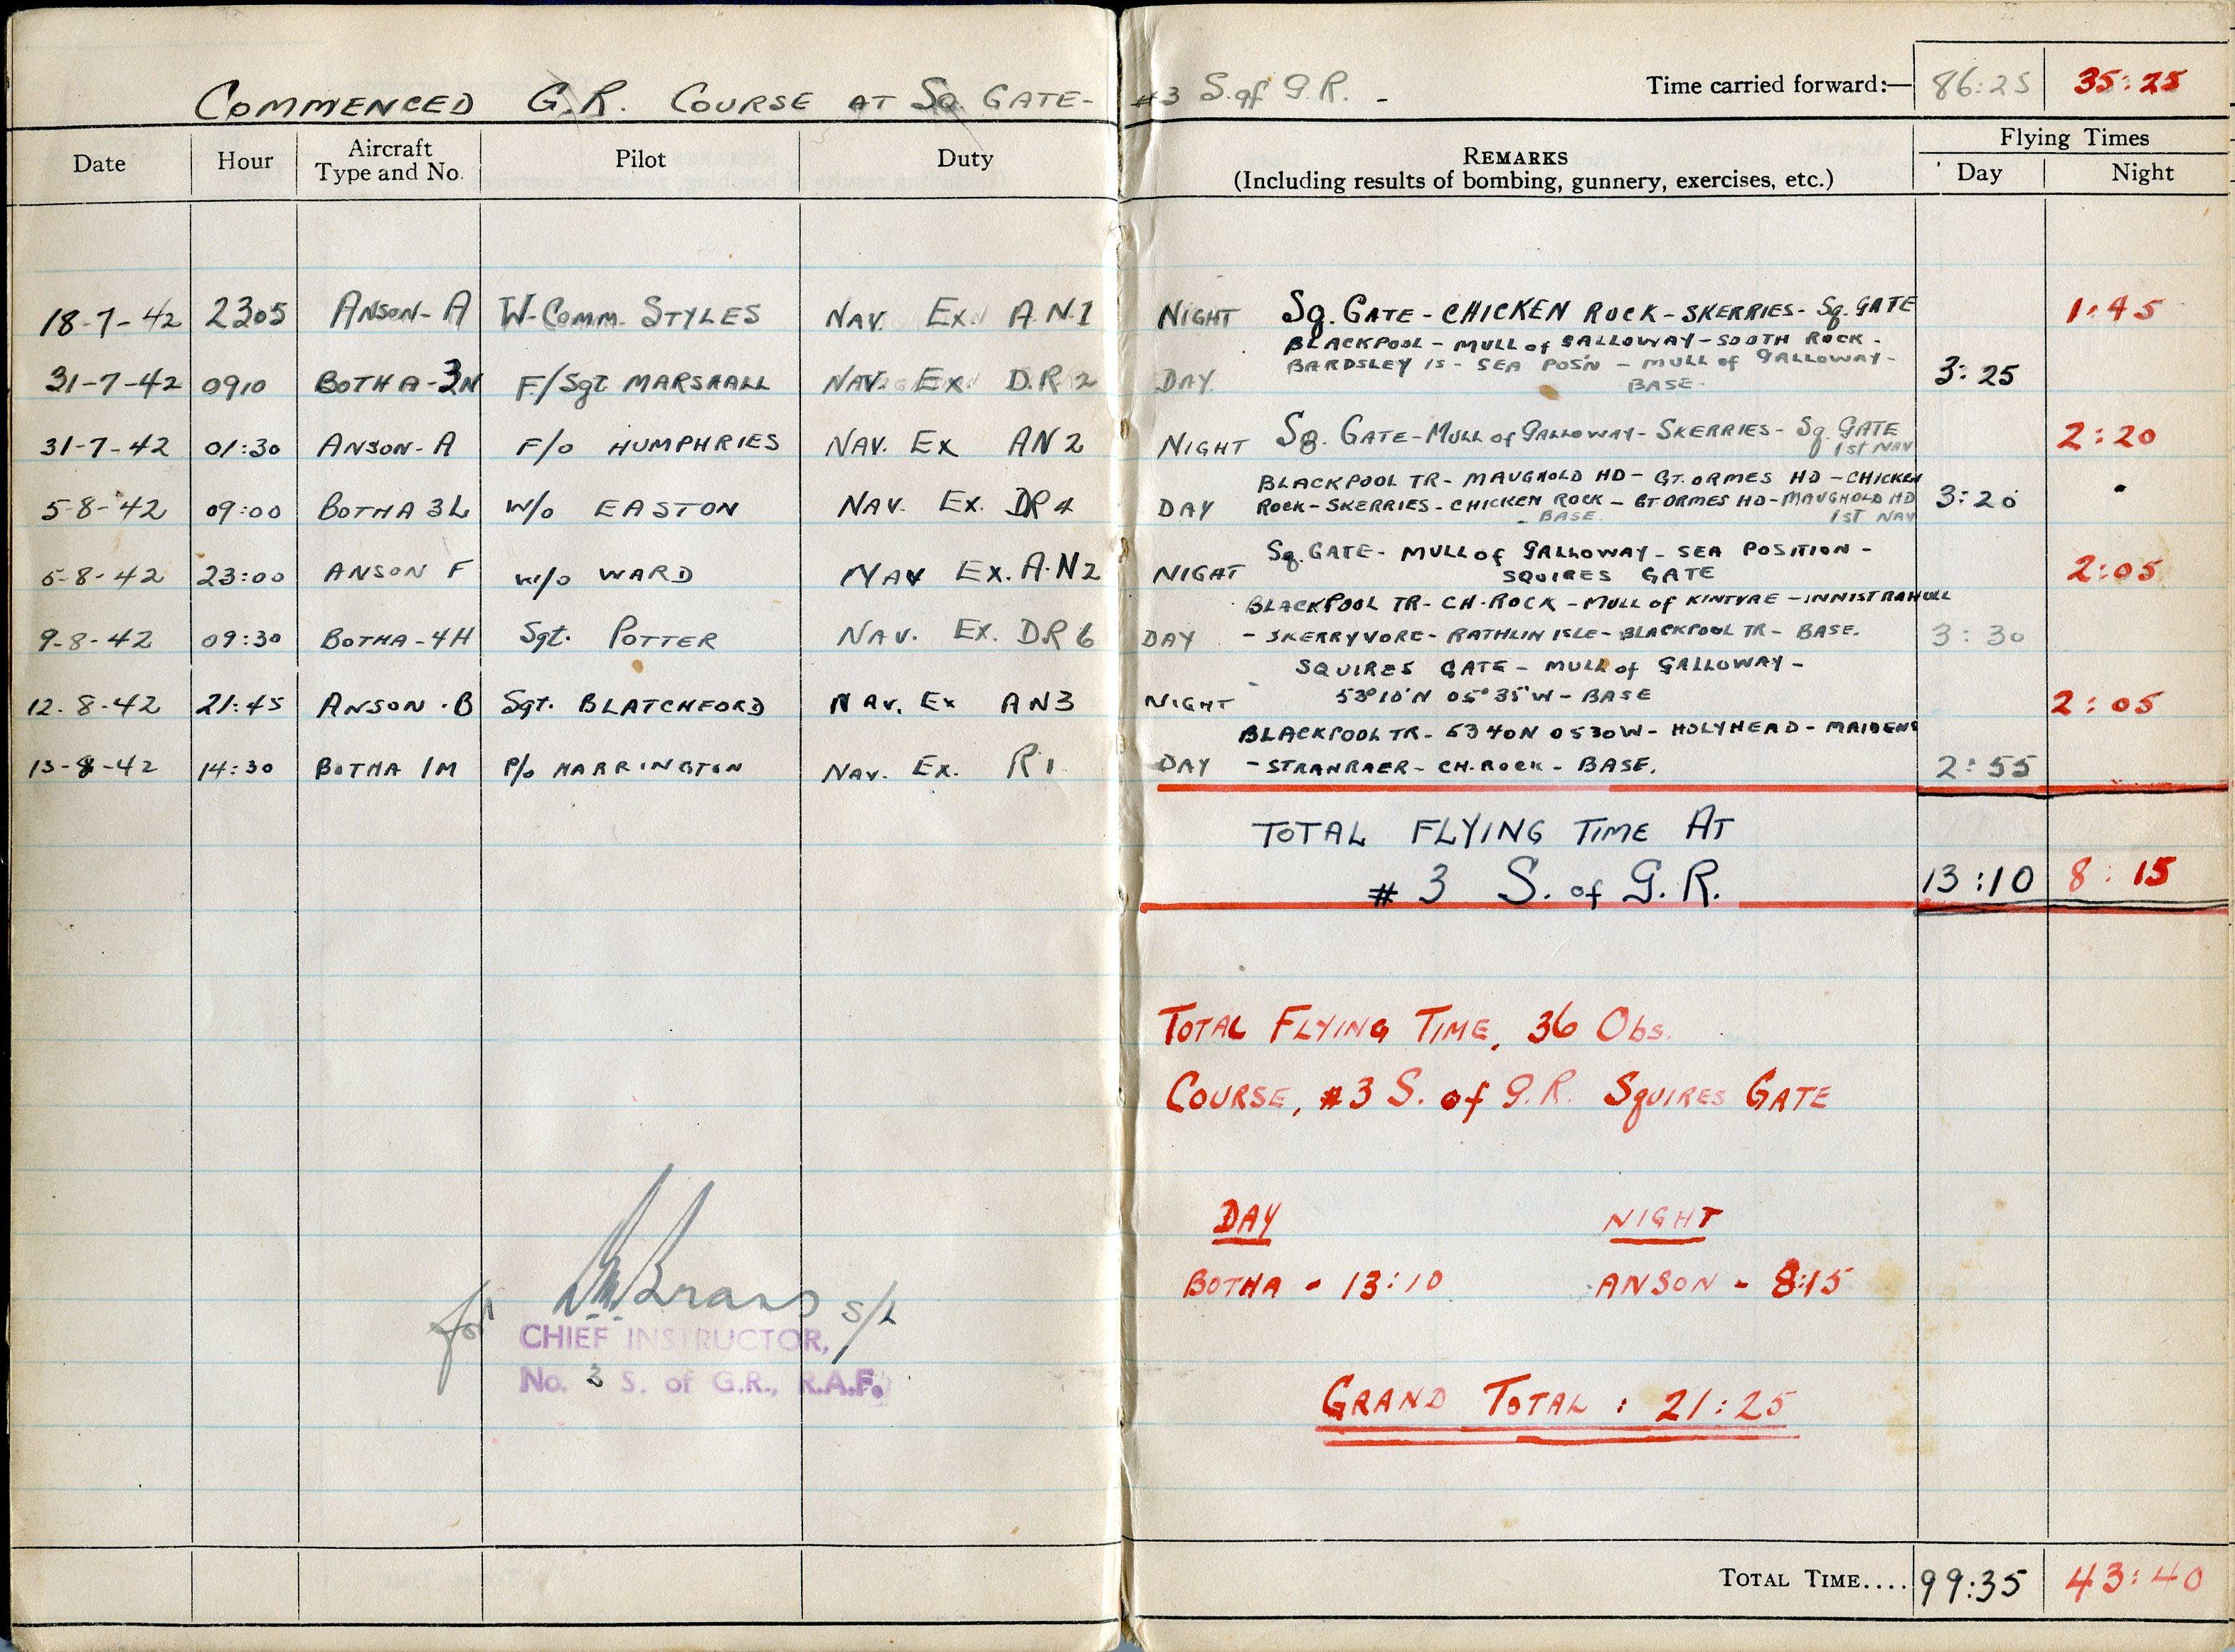 COMMENCED G.R. COURSE AT SQ. GATE- #3 S. of G.R. -
Time carried forward:— 86:25 35:25
Date Hour Aircraft Type and No. Pilot Duty REMARKS (Including results of bombing, gunnery, exercises, etc.) Flying Times Day Night
18-7-42 2305 ANSON-A W-COMM. STYLES NAV. EX. A.N.1 NIGHT SQ. GATE - CHICKEN ROCK - SKERRIES - SQ. GATE 1:45
BLACKPOOL - MULL of GALLOWAY - SOUTH ROCK -
BARDSLEY IS - SEA POS'N - MULL of GALLOWAY -
31-7-42 0910 BOTHA-3N F/Sgt MARSHALL NAV. EX D.R 2 DAY. BASE- 3:25
31-7-42 01:30 ANSON-A F/O HUMPHRIES NAV. EX AN 2 NIGHT SQ. GATE - MULL of GALLOWAY - SKERRIES - SQ. GATE 2:20
1st NAV
BLACKPOOL TR - MAUGHOLD HD - GT. ORMES HD - CHICKEN
5-8-42 09:00 BOTHA 3L W/O EASTON NAV. EX. DR 4 DAY ROCK - SKERRIES - CHICKEN ROCK - GT. ORMES HD - MAUGHOLD HD 3:20
- BASE. 1ST NAV
SQ. GATE - MULL of GALLOWAY - SEA POSITION -
5-8-42 23:00 ANSON F W/O WARD NAV EX. A.N2 NIGHT SQUIRES GATE 2:05
BLACKPOOL TR - CH. ROCK - MULL of KINTYRE - INNISTRAHULL
9-8-42 09:30 BOTHA-4H Sgt. POTTER NAV. EX. DR 6 DAY - SKERRYVORE - RATHLIN ISLE - BLACKPOOL TR - BASE. 3:30
SQUIRES GATE - MULL of GALLOWAY -
12-8-42 21:45 ANSON-B Sgt. BLATCHFORD NAV. EX AN3 NIGHT 53°10'N 05°35'W - BASE 2:05
BLACKPOOL TR - 5340N 0530W - HOLYHEAD - MAIDENS
13-8-42 14:30 BOTHA 1M P/O HARRINGTON NAV. EX. R1 DAY - STRANRAER - CH. ROCK - BASE. 2:55
TOTAL FLYING TIME AT
# 3 S. of G.R. 13:10 8:15
TOTAL FLYING TIME, 36 Obs.
COURSE, #3 S. of G.R. SQUIRES GATE
DAY NIGHT
BOTHA - 13:10 ANSON - 8:15
for S/L
CHIEF INSTRUCTOR,
No. 3 S. of G.R., R.A.F.
GRAND TOTAL : 21:25
TOTAL TIME.... 99:35 43:40